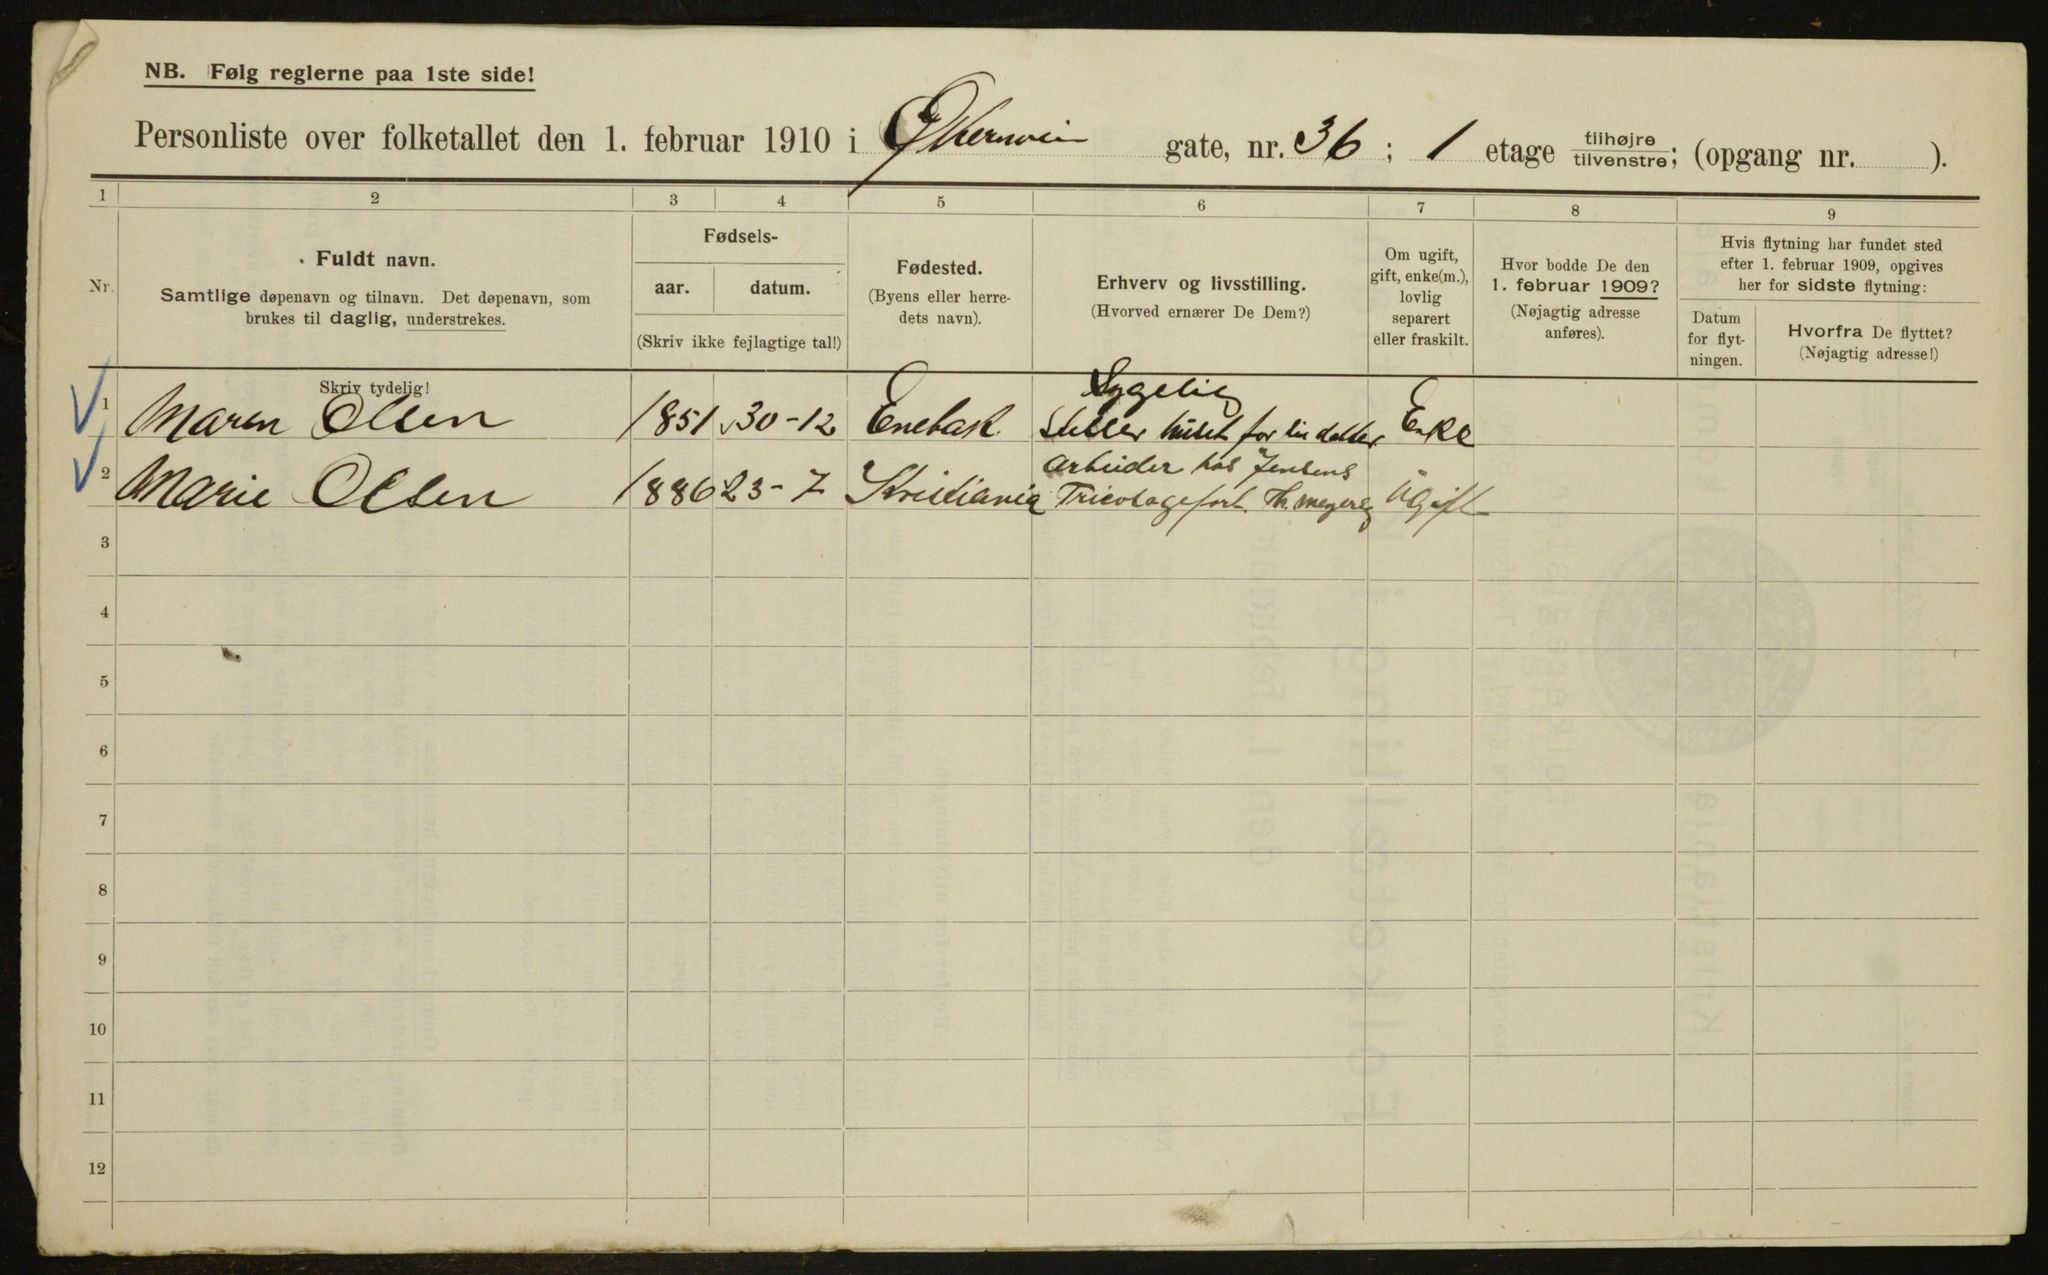 NB. Følg reglerne paa 1ste side!
Personliste over folketallet den 1. februar 1910 i Økernvein gate, nr. 36; 1 etage tilhøjre tilvenstre; (opgang nr. ).
1 2 3 4 5 6 7 8 9
Nr.
Fuldt navn.
Samtlige døpenavn og tilnavn. Det døpenavn, som
brukes til daglig, understrekes.
Skriv tydelig!
Fødsels-
aar. datum.
(Skriv ikke fejlagtige tal!)
Fødested.
(Byens eller herre-
dets navn).
Erhverv og livsstilling.
(Hvorved ernærer De Dem?)
Om ugift,
gift, enke(m.),
lovlig
separert
eller fraskilt.
Hvor bodde De den
1. februar 1909?
(Nøjagtig adresse
anføres).
Hvis flytning har fundet sted
efter 1. februar 1909, opgives
her for sidste flytning:
Datum
for flyt-
ningen.
Hvorfra De flyttet?
(Nøjagtig adresse!)
Sygelig
1 Maren Olsen 1851 30-12 Enebak Steller huset for sin datter Enke
Arbeider hos Jensens
2 Marie Olsen 1886 23-7 Kristiania Tricotagefort. Th. Meyersg Ugift
3
4
5
6
7
8
9
10
11
12